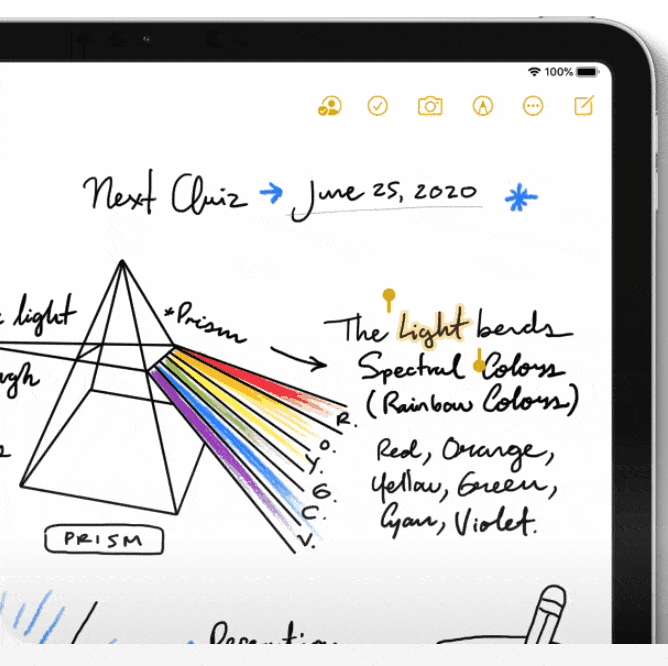 100%
Next Quiz → June 25, 2020 *
light
*Prism
The Light bends
Spectral Colors
(Rainbow Colors)
R.
O.
Y.
G.
C.
V.
Red, Orange,
Yellow, Green,
Cyan, Violet.
PRISM